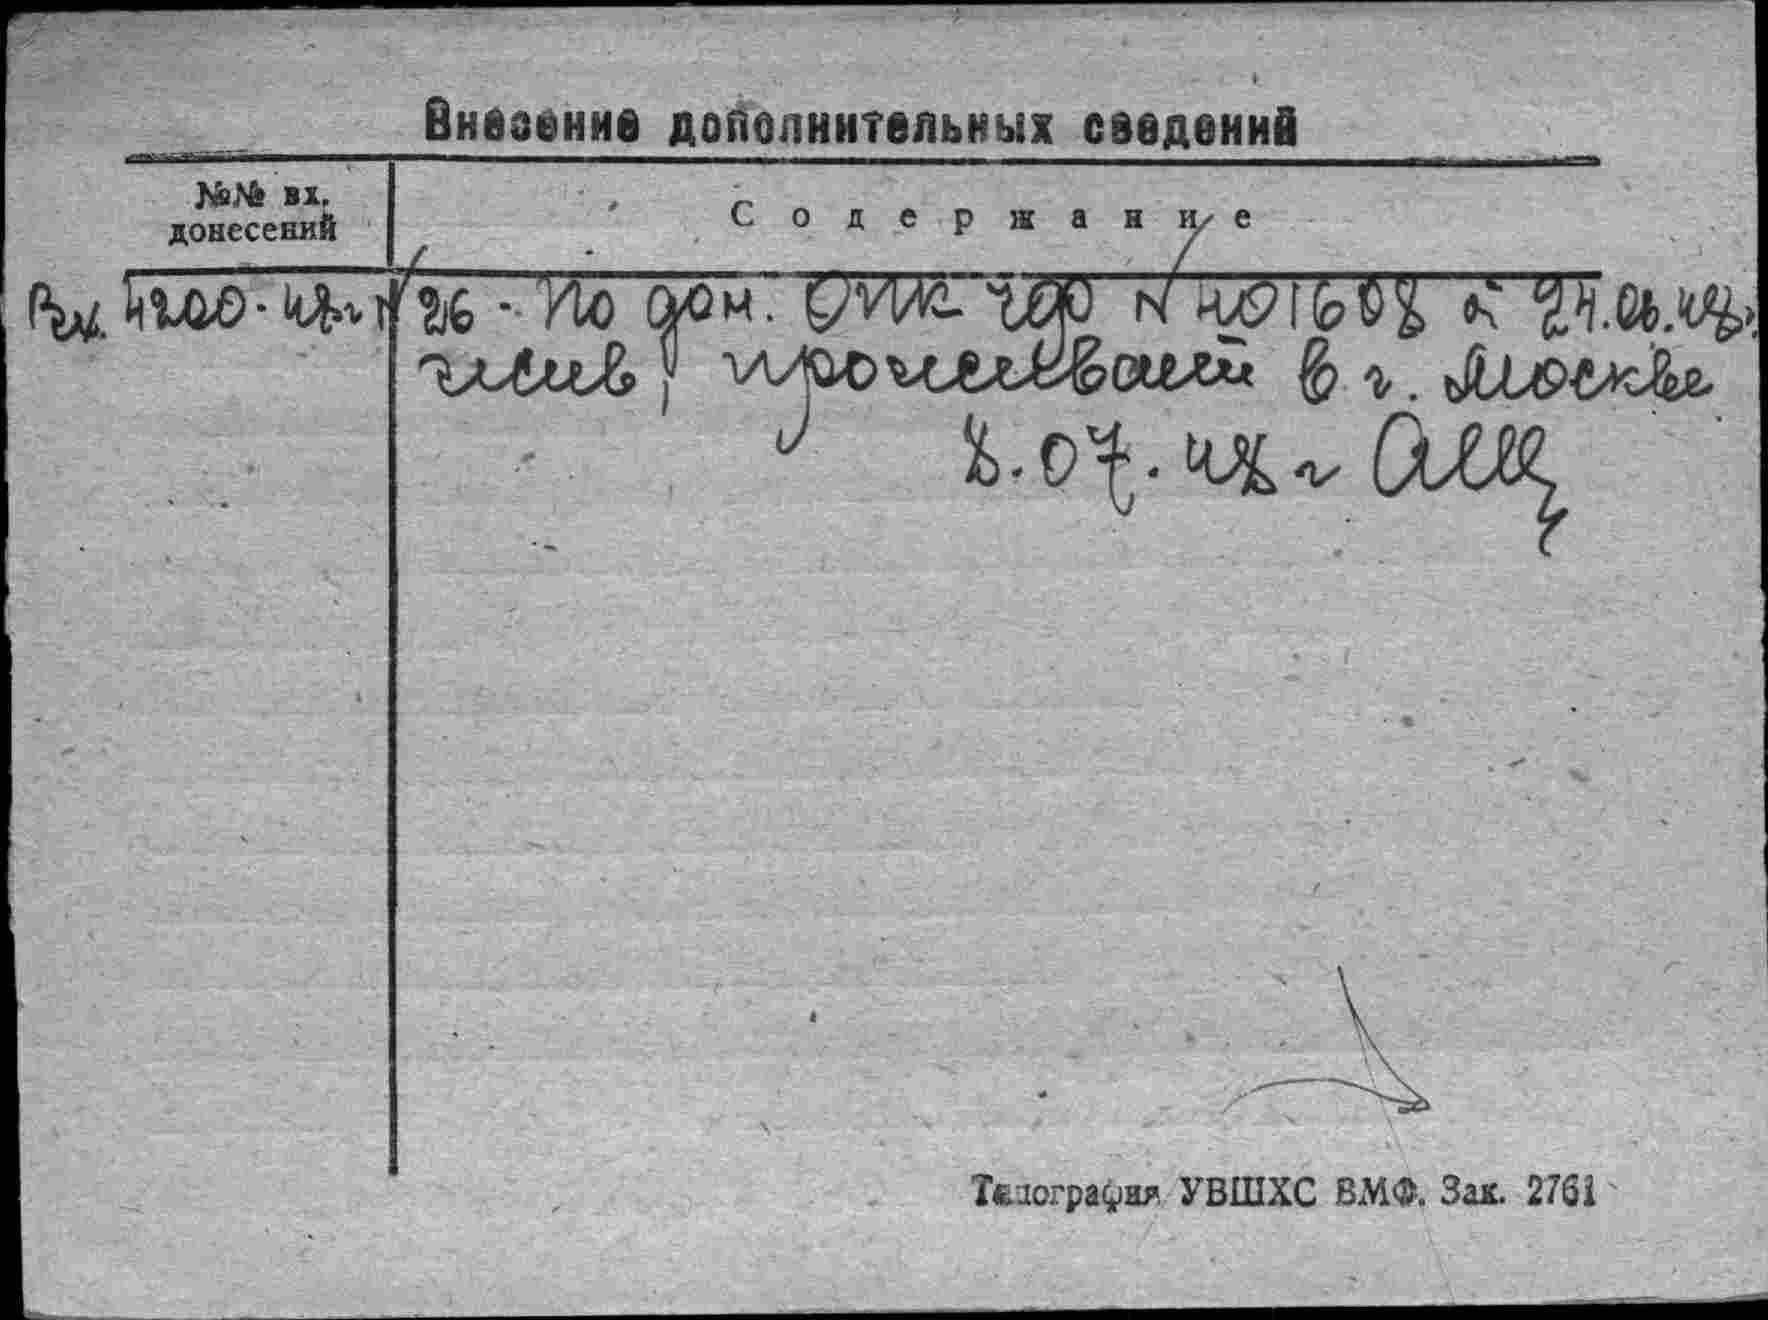 Внесение дополнительных сведений
№№ вх.
донесений
Содержание
Вх. 4200-48г №26 - По дон. ОПК ЧФ № 401608 от 24.06.48г.
жив, проживает в г. Москве
8.07.48 г
Типография УВШХС ВМФ. Зак. 2761